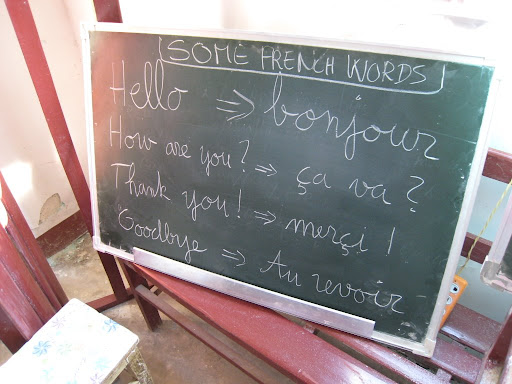 SOME FRENCH WORDS
Hello => bonjour
How are you? => ça va?
Thank you! => merçi!
Goodbye => Au revoir